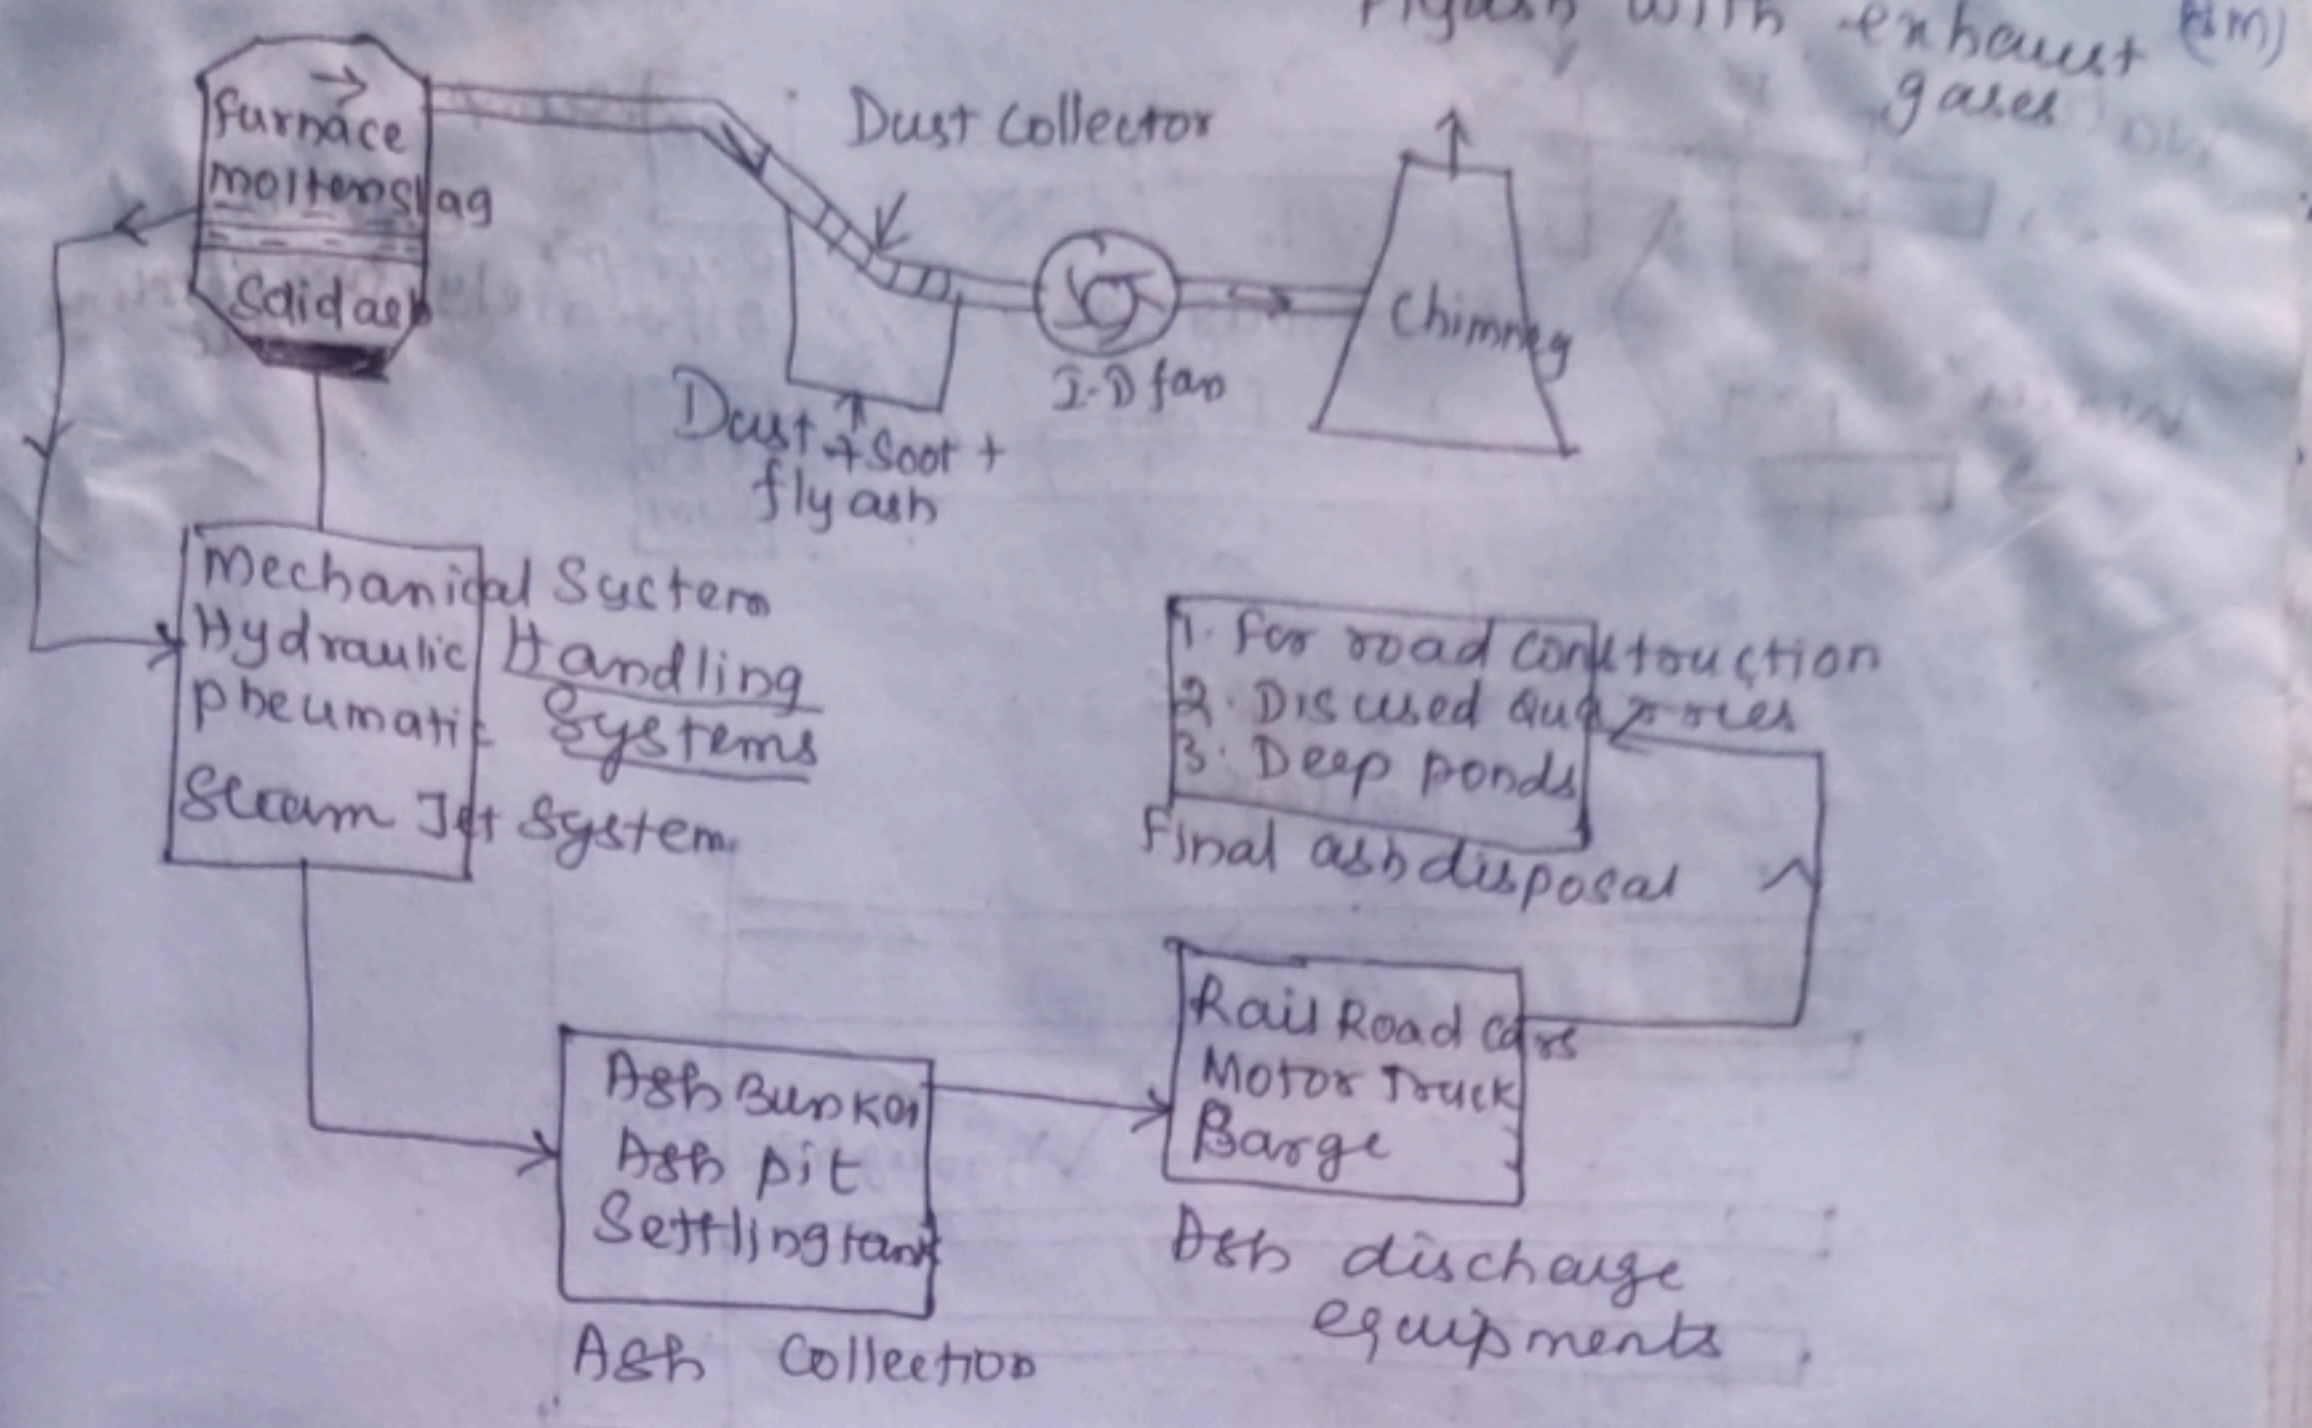 Flyash with exhaust (8m)
gases
Dust Collector
furnace
moltenslag
Solidash
Chimney
I.D fan
Dust + Soot +
fly ash
Mechanical System
Hydraulic Handling
pneumatic Systems
Steam Jet System.
1. For road construction
2. Disused Quarries
3. Deep ponds
Final ash disposal
Rail Road cars
Motor Truck
Barge
Ash discharge
equipments
Ash Bunker
Ash pit
Settling tank
Ash Collection